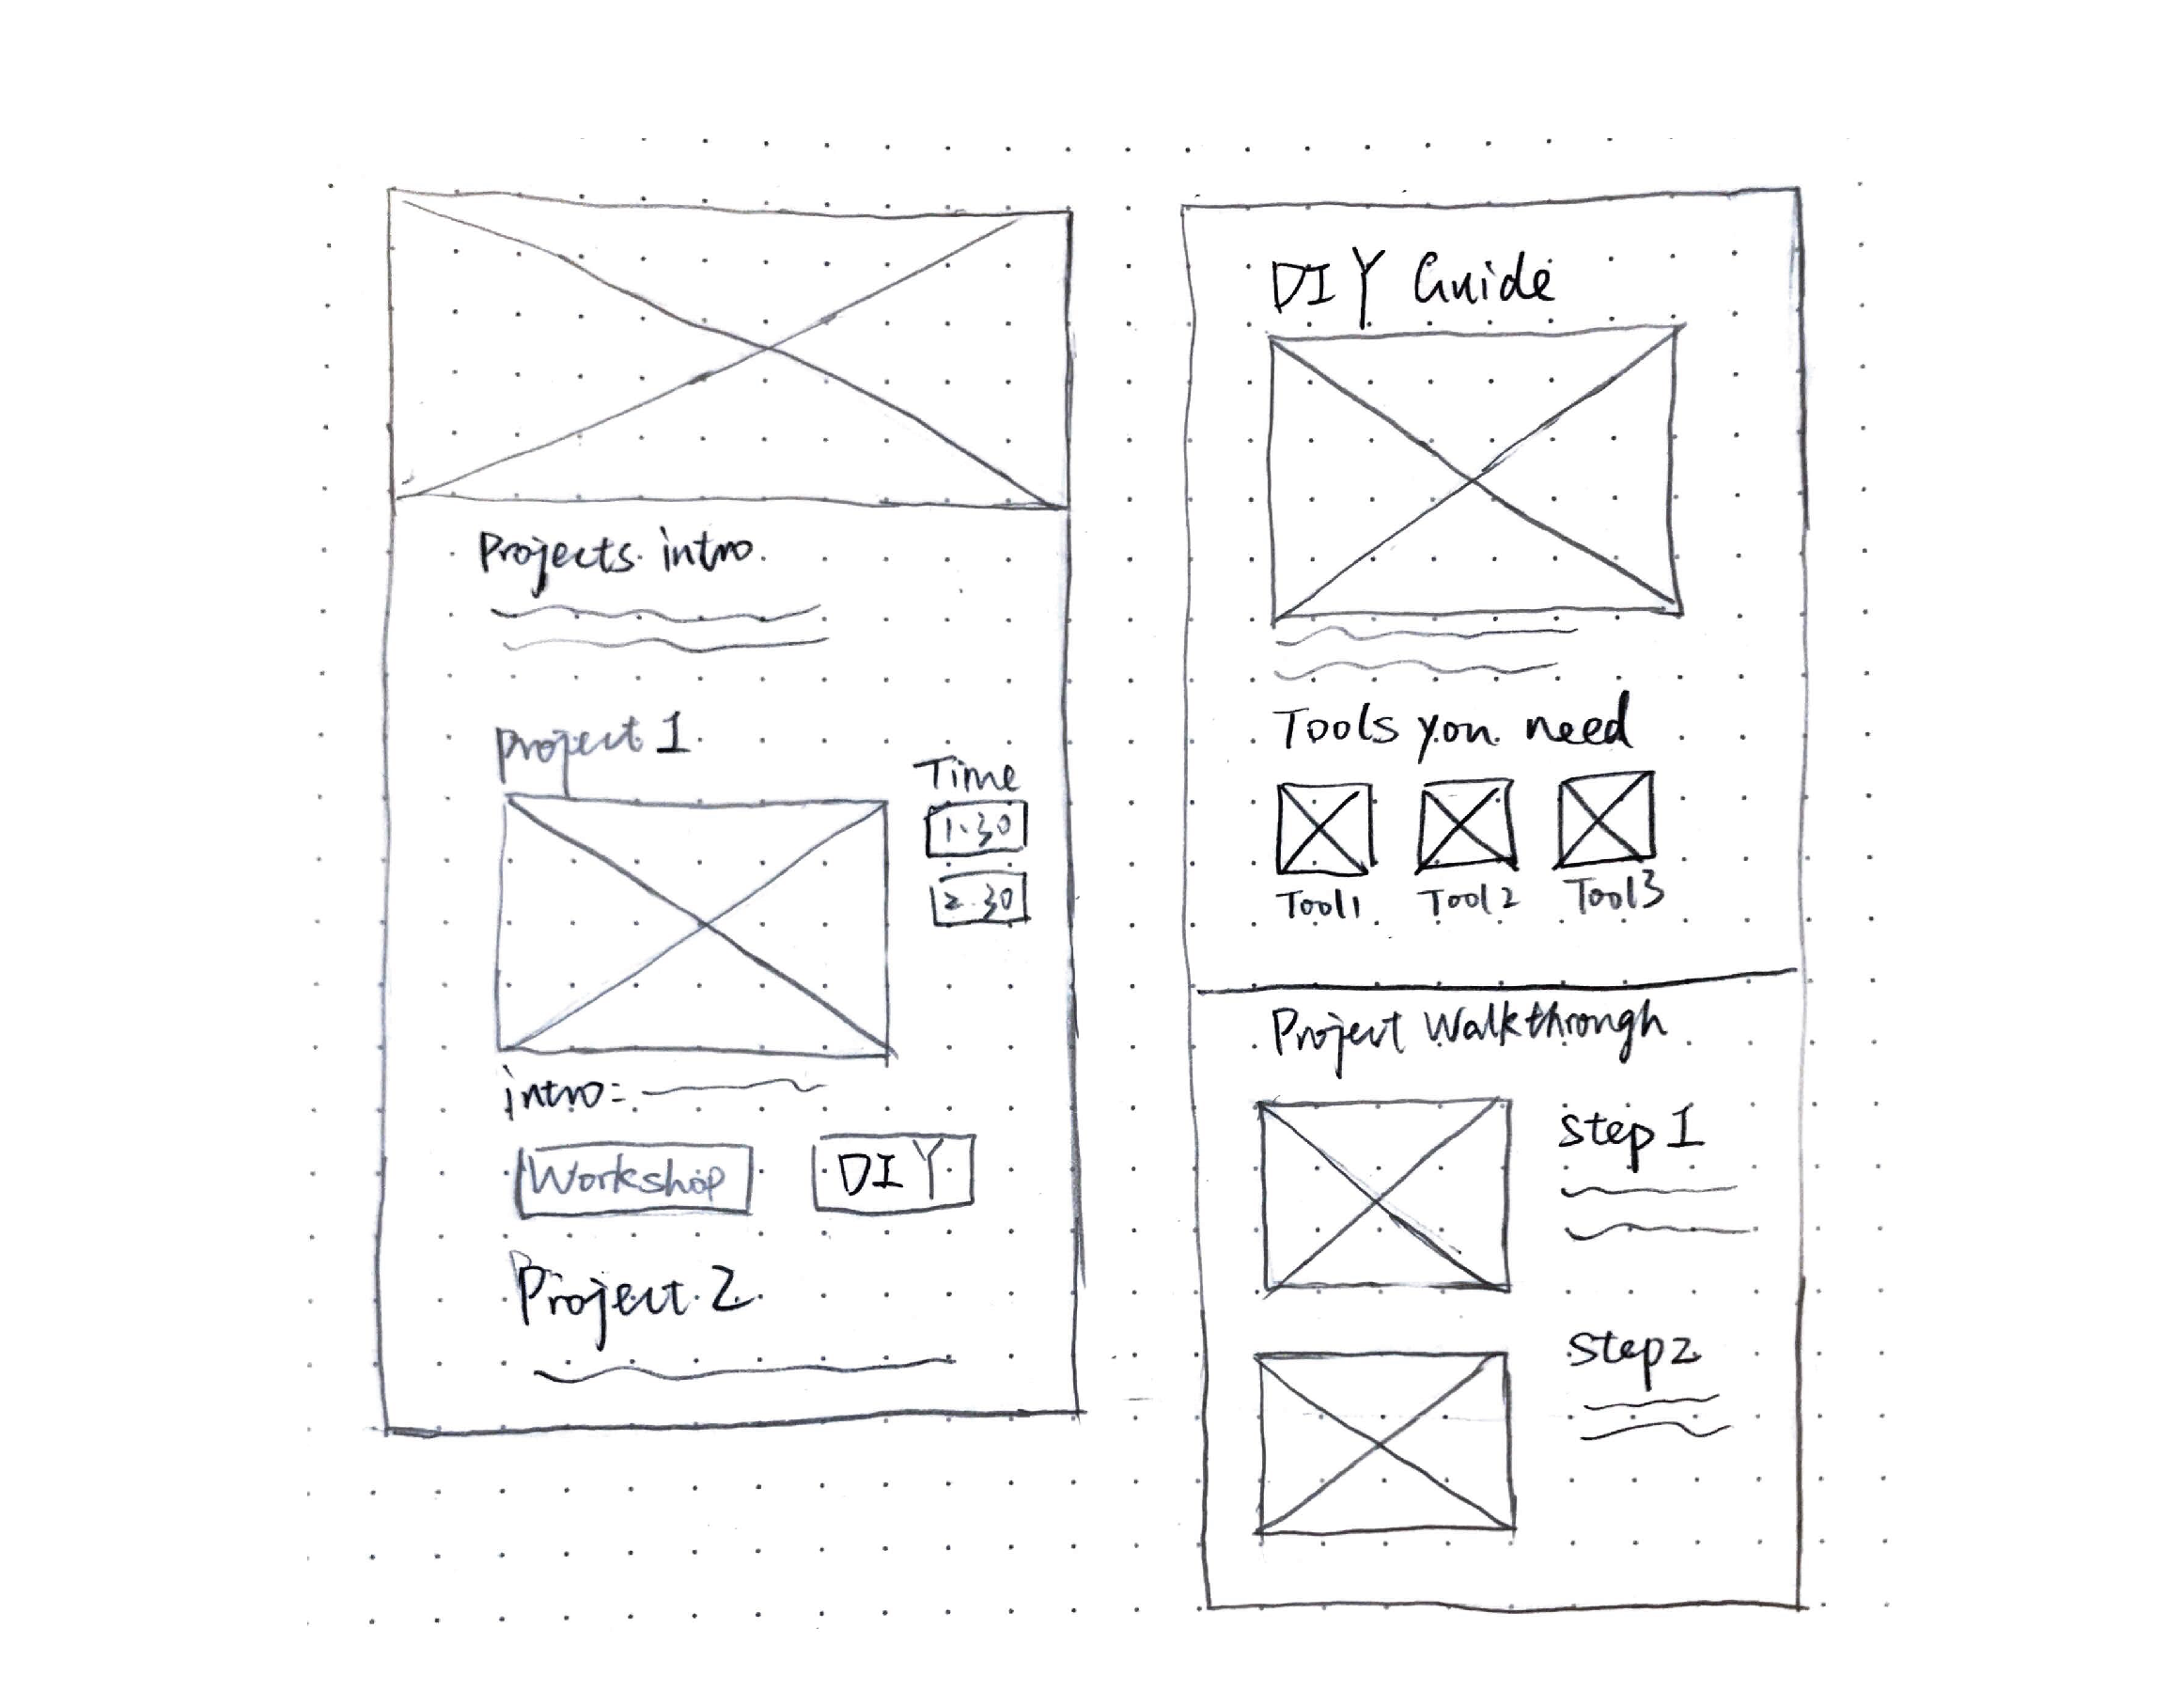 Projects intro
project 1
Time
1.30
2.30
intro:
Workshop
DIY
Project 2
DIY Guide
Tools you need
Tool1
Tool2
Tool3
Project Walkthrough
Step 1
Step2